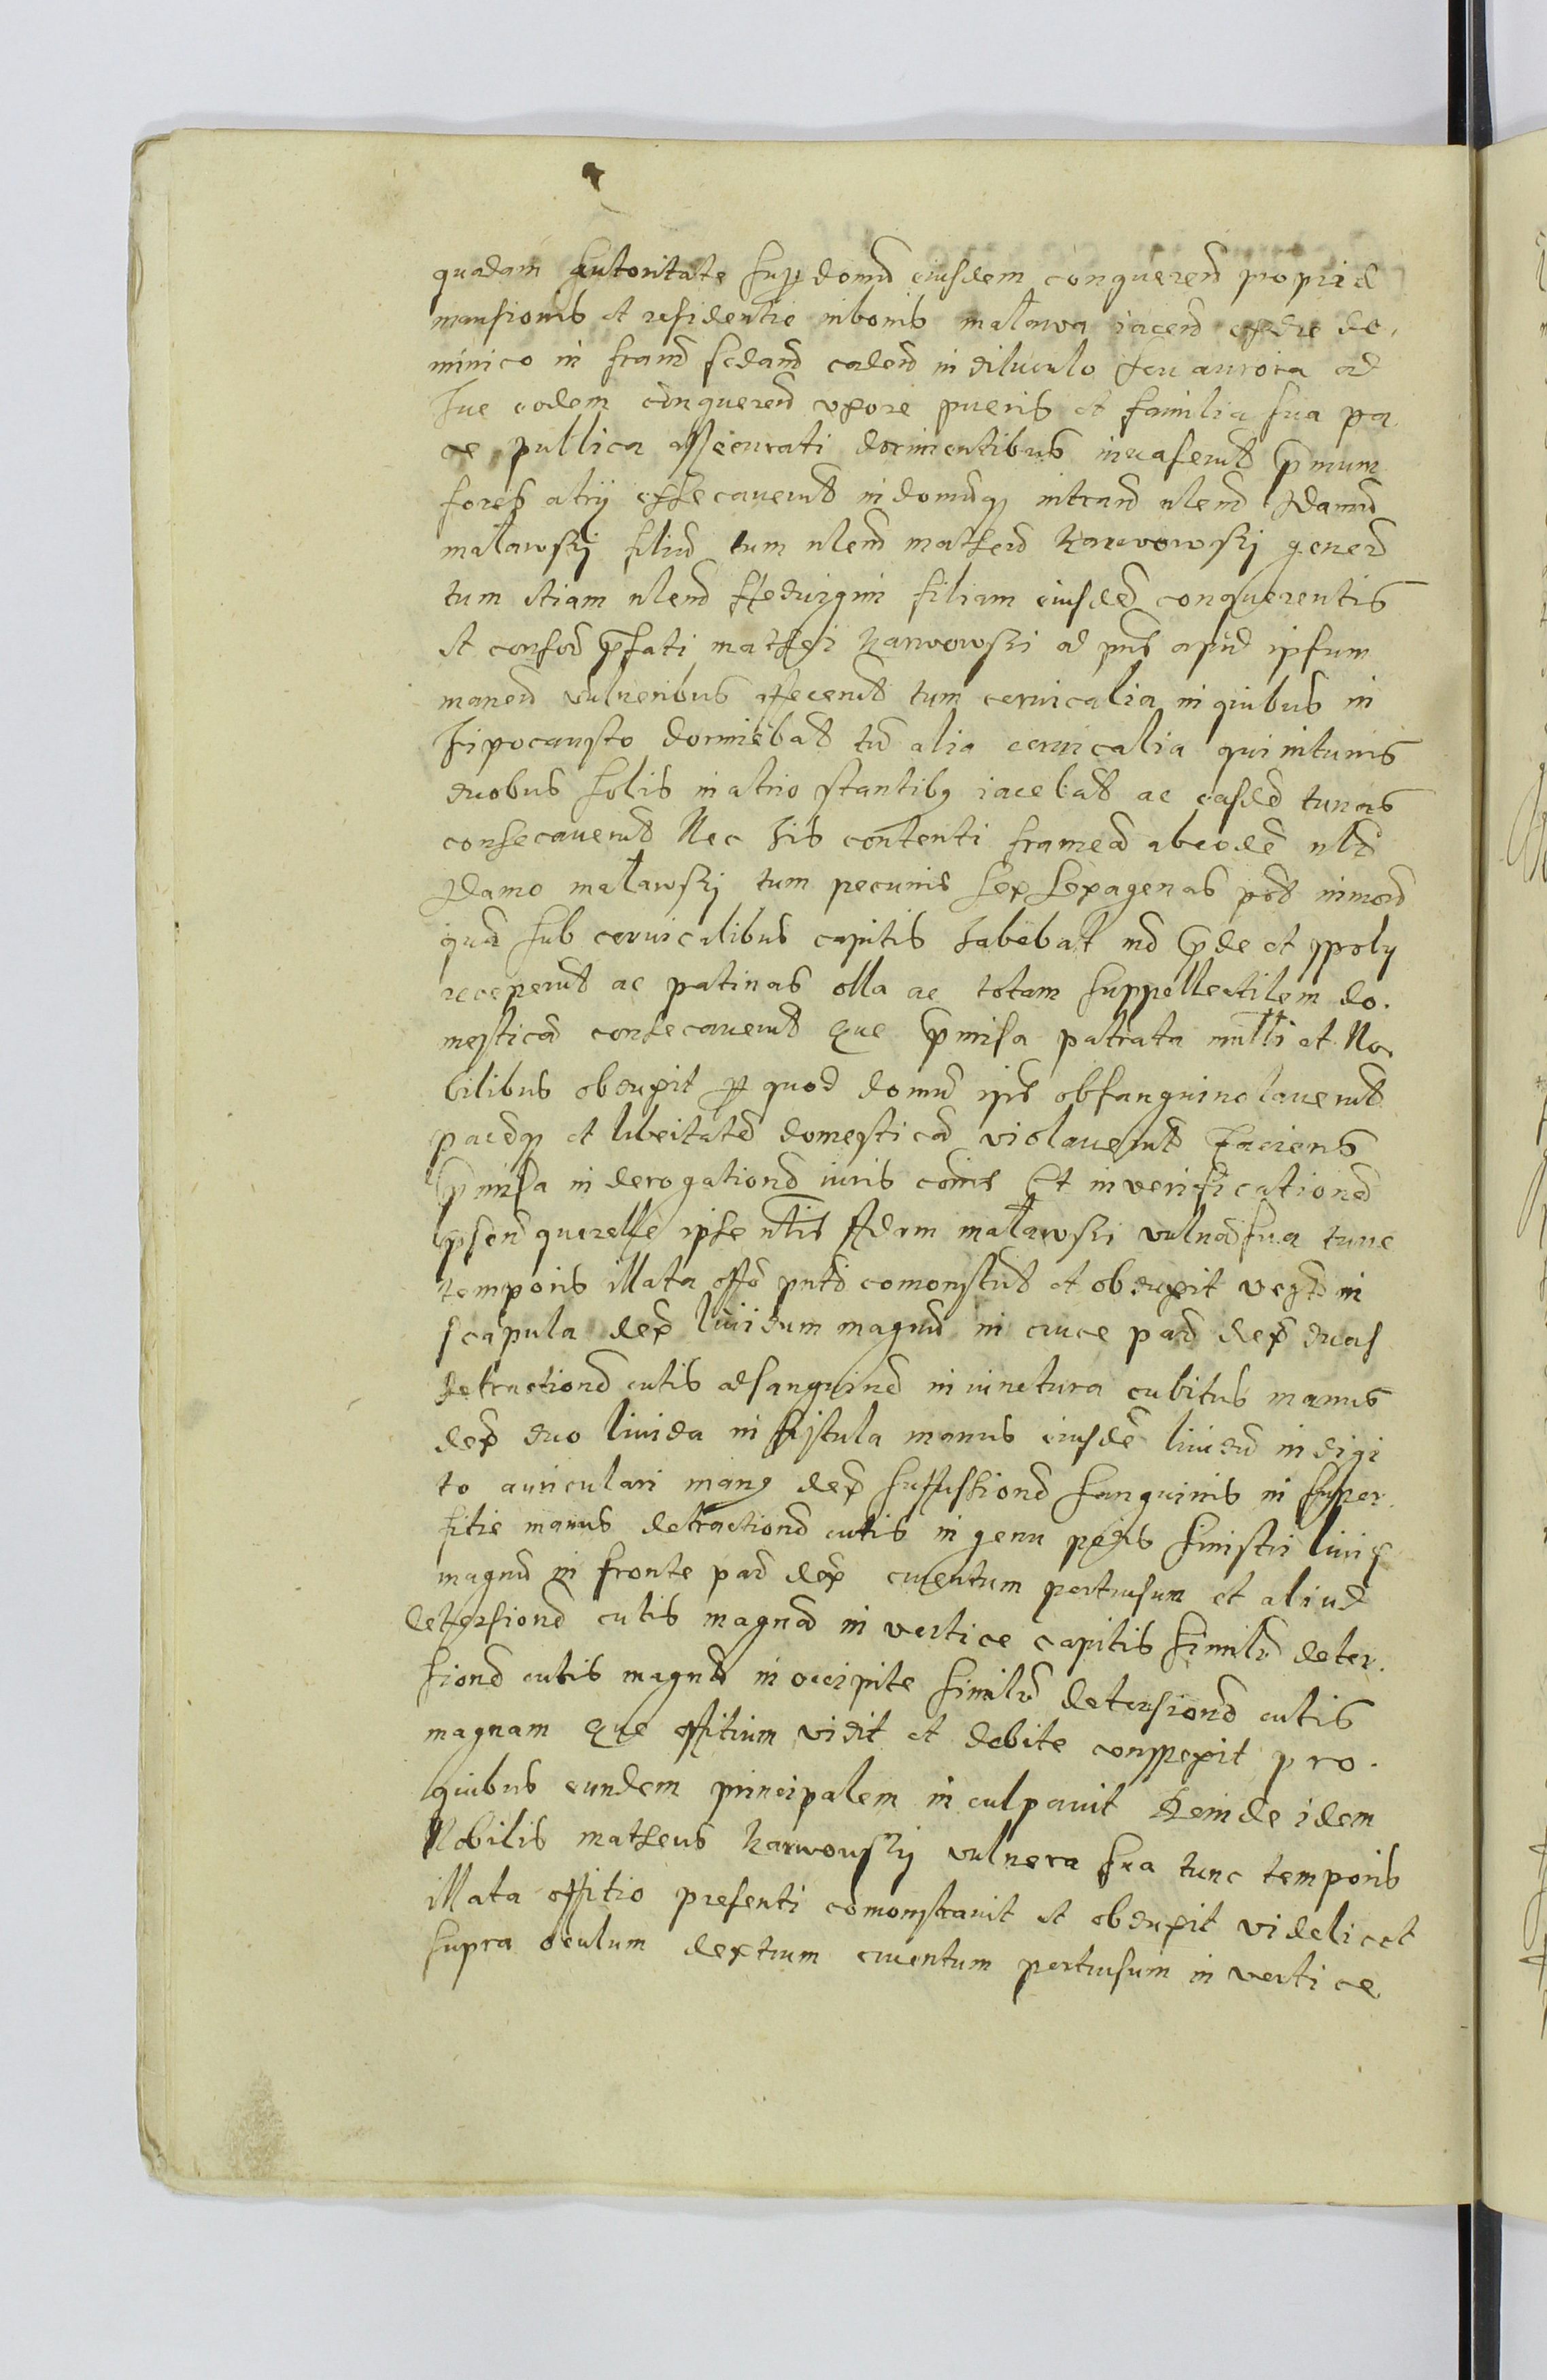 quadam Autoritate sup domū eiusdem conquerenđ propriā
mansionis et residentie in bonis maława iacenđ die do-
minico in crastinū cadenđ in diluculo seu aurora ad
huc eodem conquerenđ vxore pueris et familia sua pa
ce publica assecurati dormientibus inuaserunt primum
fores atrij exsecauerunt in domūq intranđ nlem Adamū
maławskj filiū tum nlem matheū karwowskj generū
tum etiam nlem Heduigim filiam eiusdē conquerentis
et consorđ pfati mathei karwowskj ad pns apud ipsum
manenđ vulneribus affecerunt tum ceruicalia in quibus in
hipocausto dormiebant tū alia ceruicalia qui in tunis
duobus solis in atrio stantibq iacebant ac easdē tunas
consecauerunt Nec his contenti frameā ab eodē nli
Adamo maławskj tum pecunie sex sexagenas
quā sub ceruicalibus capitis habebat mō pde et spoly
receperunt ac patinas olla ac totam suppellectilem do.
mesticā consecauerunt que pmissa patrata mlti et No
bilibus obduxit p quod domū ips obsanguinolauerunt
pacēq et libertatē domesticā violauerunt faciens
pmissa in derogationē iuris cōmis Et in verificationē
psen querelle ipse nlis Adam maławski vulna sua tunc
temporis illata offō pnti comonstrāt et obduxit vezt in
scapula dex liuidum magnū in cruce par dex duas
detractionē cutis ad sanguinē in iunctura cubitus manus
dex duo liuida in fistula manus eiusdē liuidū in digi
to auriculari manq dex suffussionē sanguinis in super
fitie manus detractionē cutis in genu pedis sinistri liuid
magnū in fronte par dex cruentum pertusum et aliud
detersionē cutis magnā in vertice capitis similr deter.
sionē cutis magnā in occipite similr detersionē cutis
magnam que offitium vidit et debite conspexit pro.
quibus eundem principalem inculpauit Deinde idem
Nobilis matheus karwouskj vulnera sua tunc temporis
illata offitio presenti comonstrauit et obduxit videlicet
supra oculum dextrum cruentum pertusum in vertice